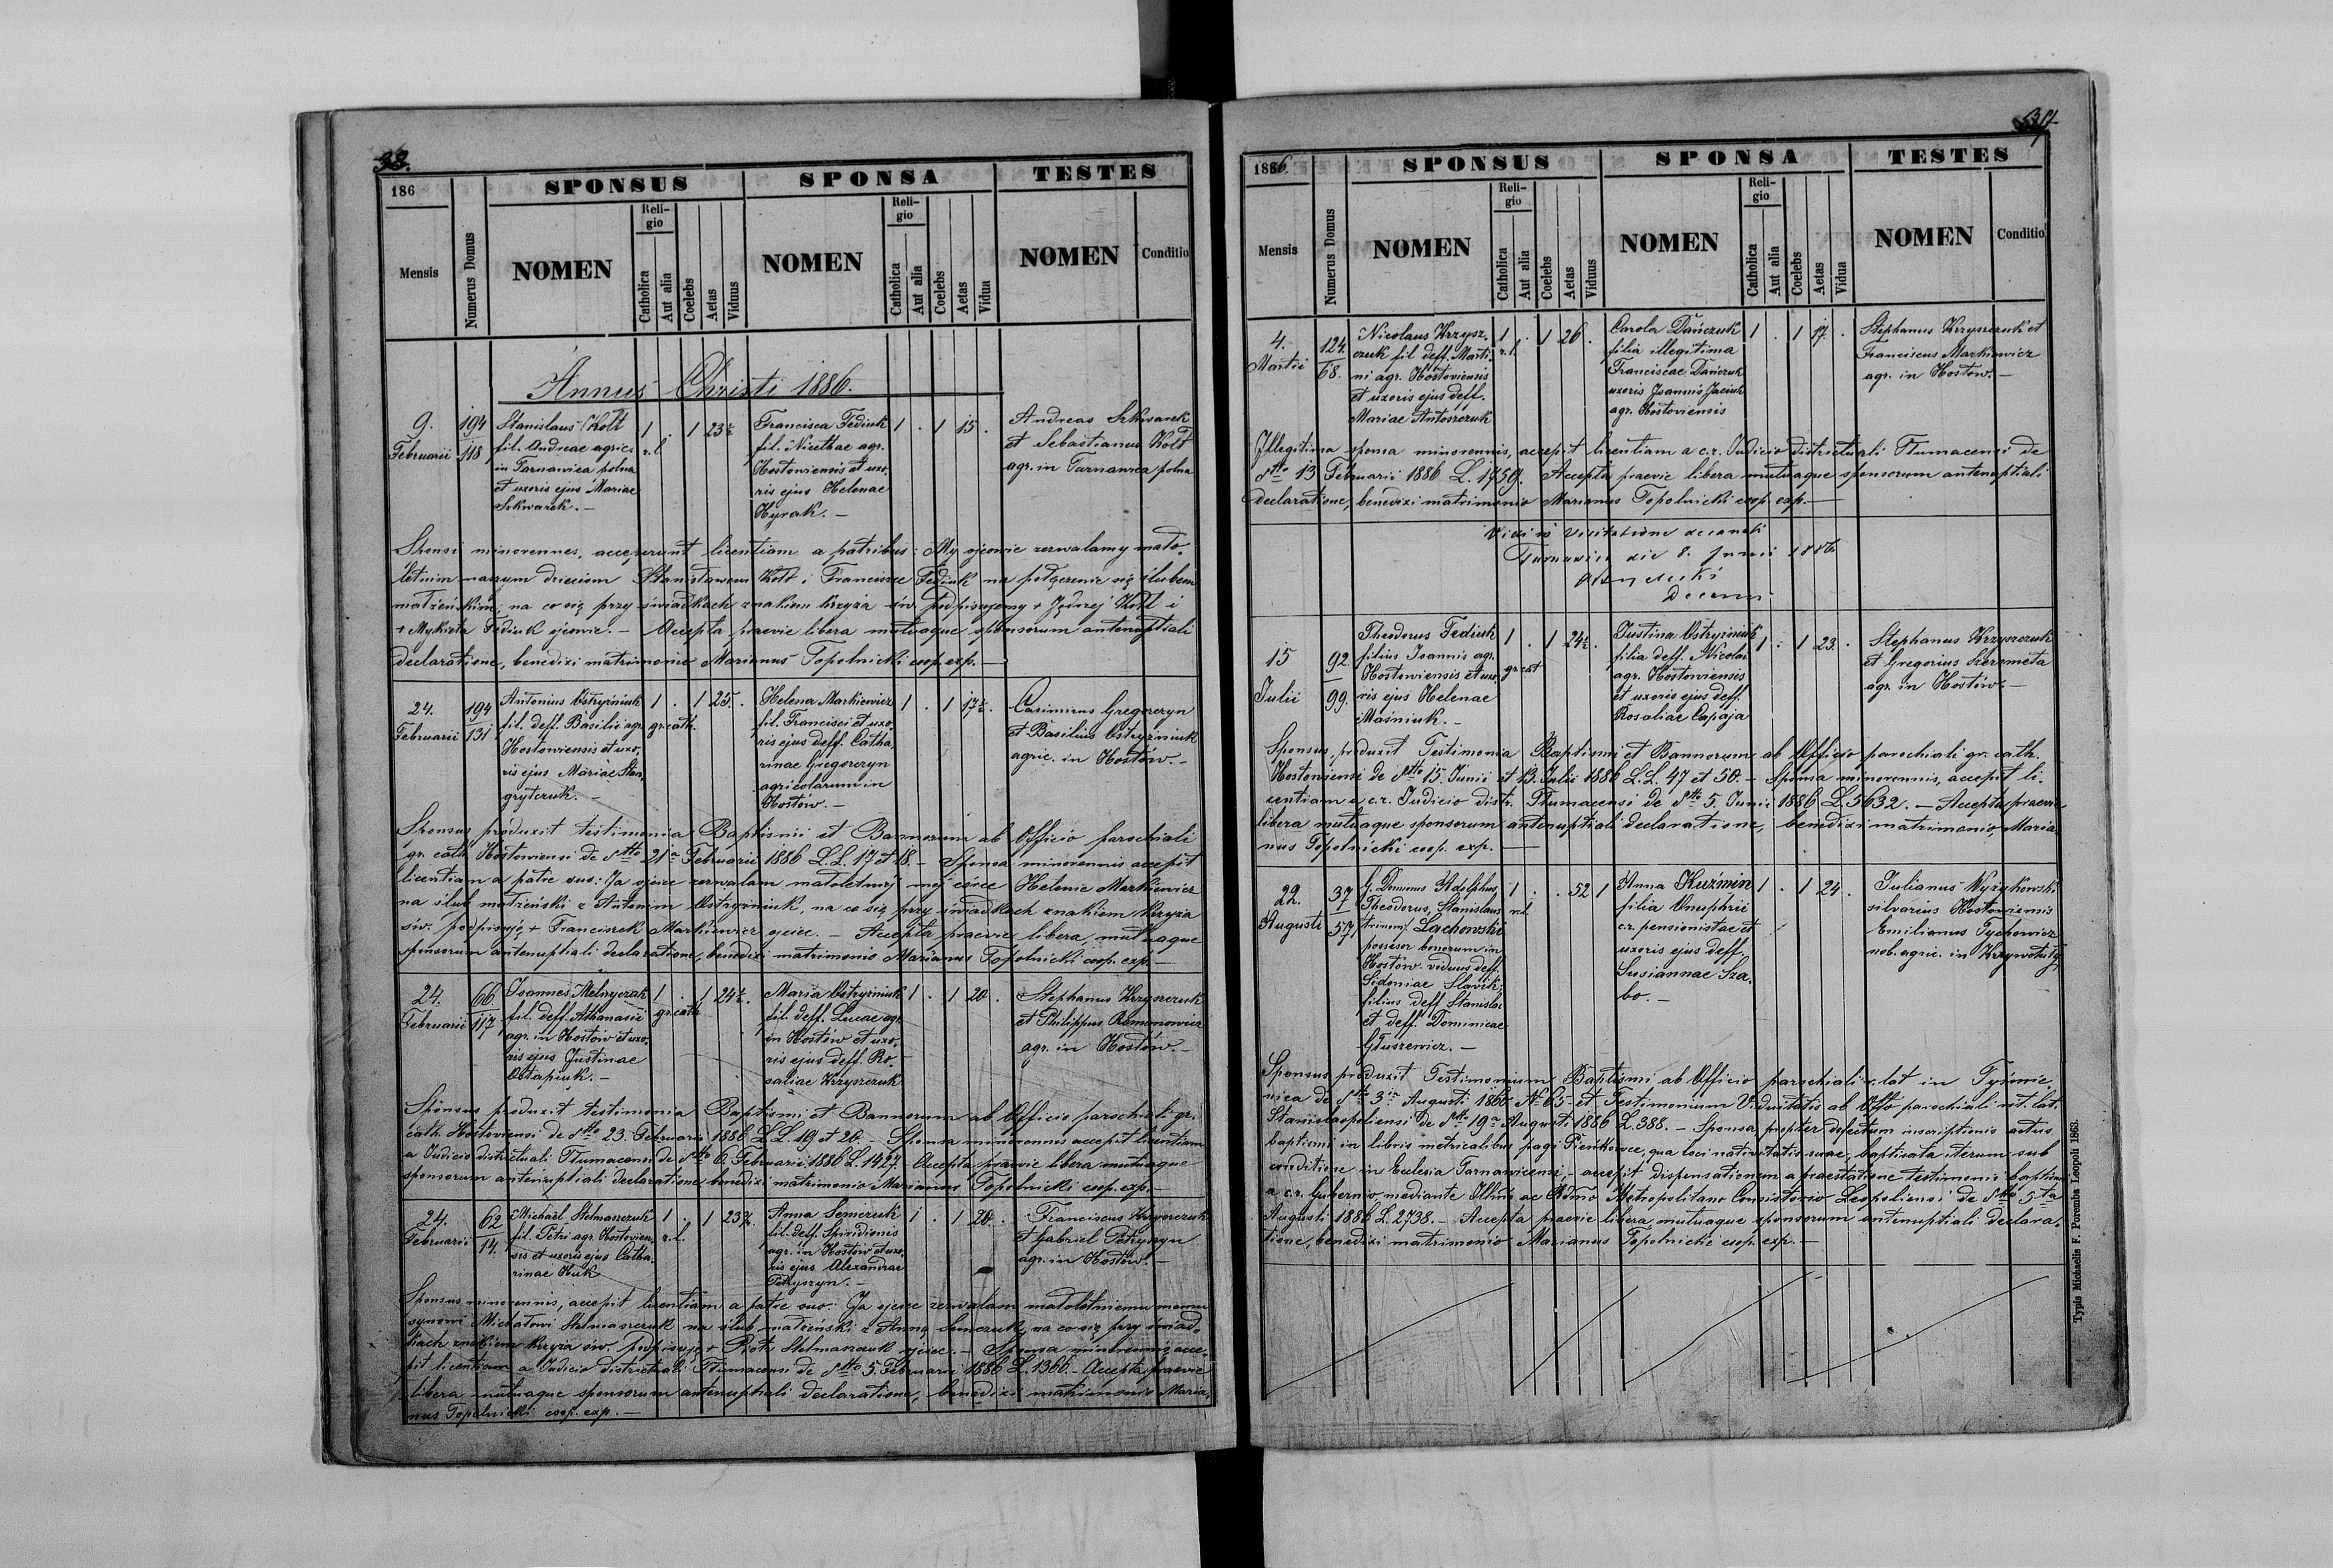 38.
186
SPONSUS
SPONSA
TESTES
Mensis
Numerus Domus
NOMEN
Religio
Catholica
Aut alia
Coelebs
Aetas
Viduus
NOMEN
Religio
Catholica
Aut alia
Coelebs
Aetas
Vidua
NOMEN
Conditio
Annus Christi 1886.
9. Februarii
194
118
Stanislaus Kott
fil. Andreae agric.
in Tarnawica polna
et uxoris ejus Mariae
Szkwarek. –
1 . 1 23½
r.l
Francisca Fediuk
fil. Nicethae agr.
Hostoviensis et uxo-
ris ejus Helenae
Hyrak. –
1 . 1 15 .
Andreas Szkwarek
et Sebastianus Kott
agr. in Tarnawica polna
Sponsi minorennes, acceperunt licentiam a patribus: My ojcowie zezwalamy mało-
letnim naszym dzieciom Stanisławowi Kott i Franciszce Fediuk na połączenie się ślubem
małżeńskim, na co się przy świadkach znakiem krzyża św. podpisujemy + Jędrzej Kott i
+ Mykieta Fediuk ojcowie. – Accepta praevie libera mutuaque sponsorum antenuptiali
declaratione, benedixi matrimonio Marianus Topolnicki coop. exp. –
24. Februarii
194
131
Antonius Ostryżniuk
fil. deff. Basilii agr.
Hostoviensis et uxo-
ris ejus Mariae Stan-
gryczuk. –
1 . 1 25. .
gr. cath.
Helena Markiewicz
fil. Francisci et uxo-
ris ejus deff. Catha-
rinae Gregorczyn
agricolarum in
Hostów. –
1 . 1 17½ .
Casimirus Gregorczyn
et Basilius Ostryżniuk
agric. in Hostów. –
Sponsus produxit testimonia Baptismi et Bannorum ab Officio parochiali
gr. cath. Hostoviensi de dtto 21a Februarii 1886 L.L. 17 et 18. – Sponsa minorennis accepit
licentiam a patre suo: Ja ojciec zezwalam małoletniej mej córce Helenie Markiewicz
na ślub małżeński z Antonim Ostryżniuk, na co się przy świadkach znakiem krzyża
św. podpisuję + Franciszek Markiewicz ojciec. – Accepta praevie libera, mutuaque
sponsorum antenuptiali declaratione, benedixi matrimonio Marianus Topolnicki coop. exp. –
24. Februarii
66
117
Joannes Melnyczak
fil. deff. Athanasii
agr. in Hostów et uxo-
ris ejus Justinae
Ostapiuk. –
1 . 1 24½ .
gr. cath
Maria Ostryżniuk
fil. deff. Lucae agr.
in Hostów et uxo-
ris ejus deff. Ro-
saliae Krzyszczuk
1 . 1 20 .
Stephanus Krzyszczuk
et Philippus Romanowicz
agr. in Hostów. –
Sponsus produxit testimonia Baptismi et Bannorum ab Officio parochiali gr.
cath. Hostoviensi de dtto 23. Februarii 1886 L.L. 19 et 20. – Sponsa minorennis accepit licentiam
a Judicio districtuali Tłumacensi de dtto 6. Februarii 1886 L. 1427. – Accepta praevie libera mutuaque
sponsorum antenuptiali declaratione benedixi matrimonio Marianus Topolnicki coop. exp. –
24. Februarii
62
14.
Michaël Stelmaszczuk
fil. Petri agr. Hostovien-
sis et uxoris ejus Catha-
rinae Huk
1 . 1 23½ .
r.l.
Anna Semczuk
fil. deff. Spiridionis
agr. in Hostów et uxo-
ris ejus Alexandrae
Petryszyn. –
1 . 1 20. .
Franciscus Krzyszczuk
et Gabriel Petryszyn
agr. in Hostów. –
Sponsus minorennis, accepit licentiam a patre suo: Ja ojciec zezwalam małoletniemu memu
synowi Michałowi Stelmaszczuk na ślub małżeński z Anną Semczuk, na co się przy świad-
kach znakiem krzyża św. podpisuję + Piotr Stelmaszczuk ojciec. – Sponsa minorennis acce-
pit licentiam a Judicio districtuali Tłumacensi de dtto 5. Februarii 1886 L. 1366. – Accepta praevie
libera mutuaque sponsorum antenuptiali declaratione, benedixi matrimonio Maria-
nus Topolnicki coop. exp. –
1886.
SPONSUS
SPONSA
TESTES
Mensis
Numerus Domus
NOMEN
Religio
Catholica
Aut alia
Coelebs
Aetas
Viduus
NOMEN
Religio
Catholica
Aut alia
Coelebs
Aetas
Vidua
NOMEN
Conditio
4. Martii
124.
68.
Nicolaus Krzysz-
czuk fil. deff. Marti-
ni agr. Hostoviensis
et uxoris ejus deff.
Mariae Antoszczuk
1 . 1 26 .
r.l.
Carola Dańczuk
filia illegitima
Franciscae Dańczuk
uxoris Joannis Jaciuk
agr. Hostoviensis
1 . 1 17. .
Stephanus Krzyszczuk et
Franciscus Markiewicz
agr. in Hostów. –
Illegitima sponsa minorennis, accepit licentiam a c.r. Judicio districtuali Tłumacensi de
dtto 13 Februarii 1886 L. 1759. Accepta praevie libera mutuaque sponsorum antenuptiali
declaratione, benedixi matrimonio Marianus Topolnicki coop. exp. –
Vidi in visitatione decanali
Tarnawica die 8. Junii 1886
Decanus
15 Julii
92.
99.
Theodorus Fediuk
filius Joannis agr.
Hostoviensis et uxo-
ris ejus Helenae
Maśniuk. –
1 . 1 24½ .
gr. cat
Justina Ostryżniuk
filia deff. Nicolai
agr. Hostoviensis
et uxoris ejus deff.
Rosaliae Capaja
1 . 1 23. .
Stephanus Krzyszczuk
et Gregorius Szeremeta
agr. in Hostów. –
Sponsus, produxit Testimonia Baptismi et Bannorum ab Officio parochiali gr. cath.
Hostoviensi de dtto 15. Junii et 13. Julii 1886 L.L. 47 et 50. – Sponsa minorennis, accepit li-
centiam a c.r. Judicio distr. Tłumacensi de dtto 5. Junii 1886 L. 5632. – Accepta praevie
libera mutuaque sponsorum antenuptiali declaratione, benedixi matrimonio, Maria-
nus Topolnicki coop. exp. –
22. Augusti
37
57
G. Dominus Adolphus,
Theodorus, Stanislaus
trinom. Lachowski
possesor bonorum in
Hostów. viduus deff.
Sidoniae Slavik;
filius deff. Stanislai
et deff. Dominicae
Głuszewicz. –
1 . . 52 1
r.l.
Anna Kuźmin
filia Onuphrii
c.r. pensionistae et
uxoris ejus deff.
Susiannae Sza-
bo. –
1 . 1 24 .
Julianus Wyżykowski
silvarius Hostoviensis
Emilianus Tychowicz
nob. agric. in Krzywotuły
Sponsus produxit Testimonium Baptismi ab Officio parochiali r. lat in Tyśmie-
nica de dtto 3ia Augusti 1860 № 65 et Testimonium Viduitatis ab Offo parochiali rit. lat.
Stanislaopoliensi de dtto 19a Augusti 1886 L. 388. – Sponsa propter defectum inscriptionis actus
baptismi in libris metricalibus pagi Pieńkowce, qua loci nativitatis suae, baptisata iterum sub
conditione in Ecclesia Tarnavicensi, – accepit dispensationem a praestatione testimonii baptismi
a c.r. Gubernio, mediante Illmo ac Rdmo Metropolitano Consistorio Leopoliensi de dtto 5ta
Augusti 1886 L. 2738. – Accepta praevie libera mutuaque sponsorum antenuptiali declara-
tione, benedixi matrimonio Marianus Topolnicki coop. exp. –
Typis Michaelis F. Poremba Leopoli 1863.